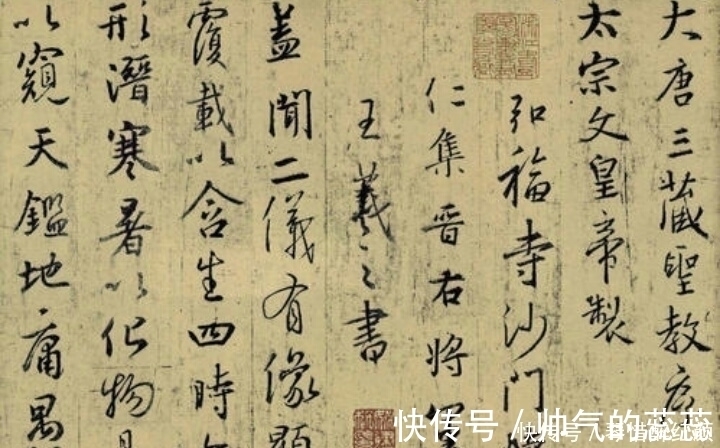 大唐三藏聖教序
太宗文皇帝製
弘福寺沙門
仁集晉右將軍
王羲之書
蓋聞二儀有像顯
覆載以含生四時
形潛寒暑以化物是
以窺天鑑地庸愚
快传号 / 帅气的蕊蕊